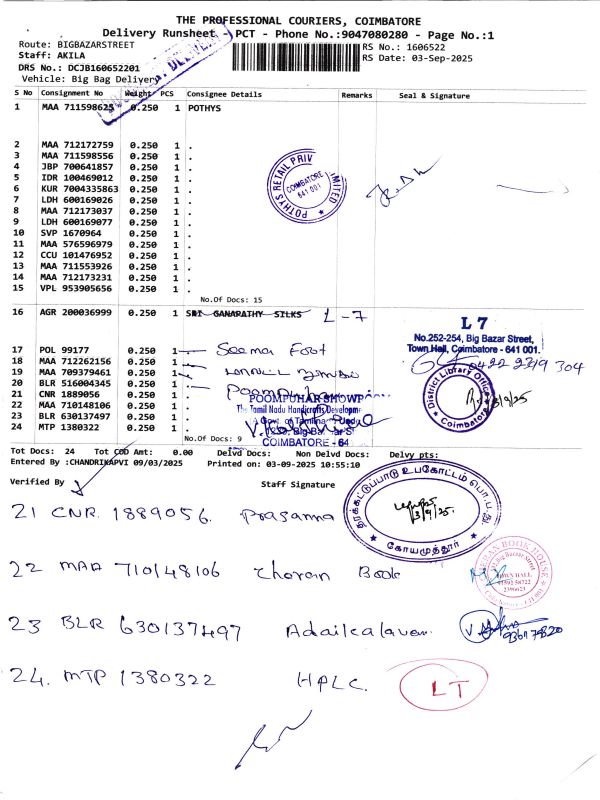 THE PROFESSIONAL COURIERS, COIMBATORE
Delivery Runsheet - PCT - Phone No.:9047080280 - Page No.:1
Route: BIGBAZARSTREET
RS No.: 1606522
Staff: AKILA
RS Date: 03-Sep-2025
DRS No.: DCJB160652201
Vehicle: Big Bag Delivery
S No Consignment No Weight PCS Consignee Details Remarks Seal & Signature
1 MAA 711598625 0.250 1 POTHYS
2 MAA 712172759 0.250 1 .
3 MAA 711598556 0.250 1 .
4 JBP 700641857 0.250 1 .
5 IDR 100469012 0.250 1 .
6 KUR 7004335863 0.250 1 .
7 LDH 600169026 0.250 1 .
8 MAA 712173037 0.250 1 .
9 LDH 600169077 0.250 1 .
10 SVP 1670964 0.250 1 .
11 MAA 576596979 0.250 1 .
12 CCU 101476952 0.250 1 .
13 MAA 711553926 0.250 1 .
14 MAA 712173231 0.250 1 .
15 VPL 953905656 0.250 1 .
POTHYS RETAIL PRIV LIMITED
COIMBATORE
641 001
No.Of Docs: 15
16 AGR 200036999 0.250 1 SRI GANAPATHY SILKS L-7
L 7
No.252-254, Big Bazar Street,
Town Hall, Coimbatore - 641 001.
0422 2219 304
17 POL 99177 0.250 1 Seema Foot
18 MAA 712262156 0.250 1
19 MAA 709379461 0.250 1
20 BLR 516004345 0.250 1
21 CNR 1889056 0.250 1
22 MAA 710148106 0.250 1
23 BLR 630137497 0.250 1
24 MTP 1380322 0.250 1
POOMPUHAR SHOWP
The Tamil Nadu Handicrafts Developme
COIMBATORE - 64
District Library Officer
Coimbatore
No.Of Docs: 9
Tot Docs: 24 Tot COD Amt: 0.00 Delvd Docs: Non Delvd Docs: Delvy pts:
Entered By :CHANDRIKAPVI 09/03/2025 Printed on: 03-09-2025 10:55:10
Verified By
Staff Signature
கோயமுத்தூர்
21 CNR 1889056. Prasanna
22 MAA 710148106 Choran Book
BOOK HOUSE
TOWN HALL
23 BLR 630137497 Adaikalavan
24. MTP 1380322 HPLC. LT